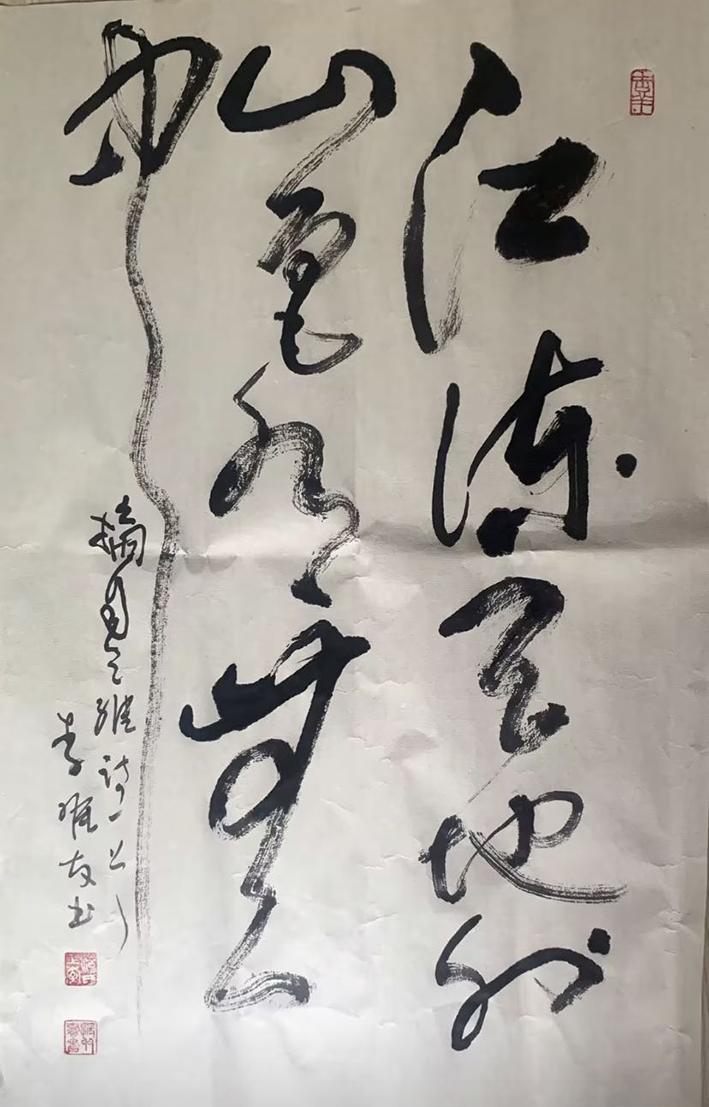 江流天地外
山色有無
中
摘自王维诗
李 友书